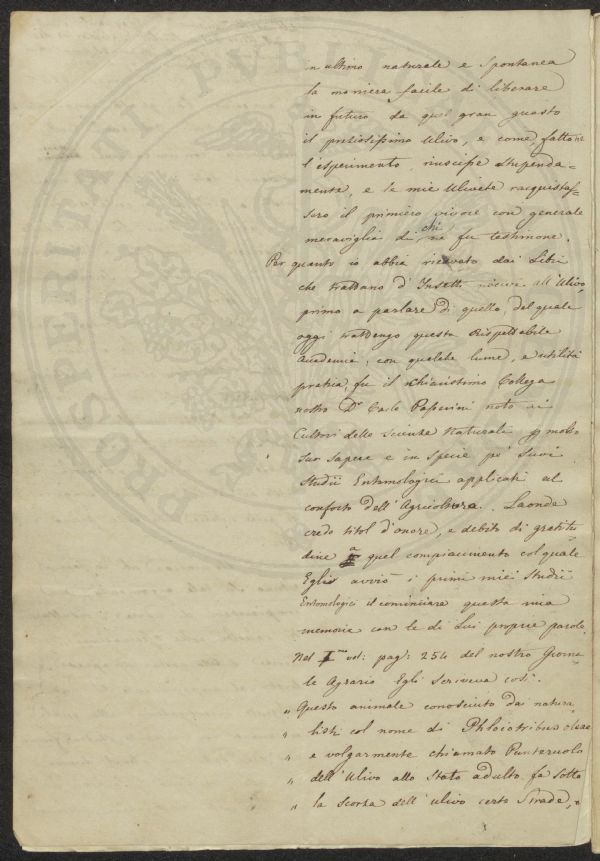 in ultimo naturale e spontanea
la maniera facile di liberare
in futuro da quel gran guasto
il preziosissimo ulivo, e come fattone
l'esperimento riuscisse stupenda=
mente, e le mie Ulivete racquistas=
sero il primiero vivore con generale
meraviglia di chi ne fu testimone.
Per quanto io abbia ricavato dai Libri
che trattano d'Insetti nocivi all'Ulivo,
primo a parlare di quello, del quale
oggi trattengo questa Rispettabile
Accademia, con qualche lume, e utilità
pratica, fu il chiarissimo Collega
nostro Dr. Carlo Passerini noto ai
Cultori delle Scienze Naturali p molto
suo sapere e in specie pe' suoi
Studii Entomologici applicati al
conforto dell'Agricoltura. Laonde
credo titol d'onore, e debito di gratitu
dine a quel compiacimento col quale
Egli avviò i primi miei Studii
Entomologici il cominciare questa mia
memoria con le di Lui proprie parole.
Nel Imo vol: pag: 254 del nostro Giorna
le Agrario Egli scriveva così.
„ Questo animale conosciuto dai natura
„ listi col nome di Phloiotribus oleae
„ e volgarmente chiamato Punteruolo
„ dell'Ulivo allo stato adulto fa sotto
„ la scorza dell'ulivo certe strade, o
PROSPERITATI PVBLICAE